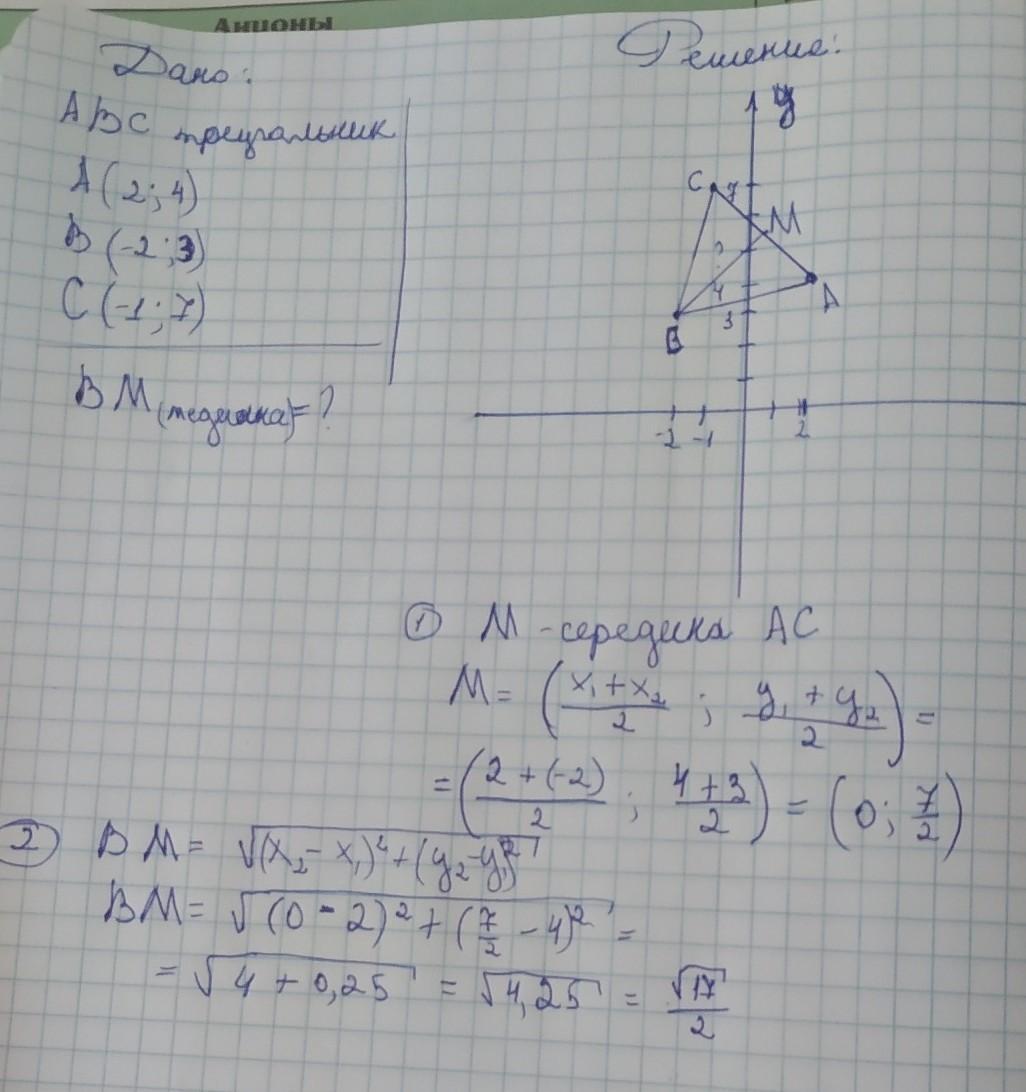 Анионы
Дано:
ABC треугольник
A (2; 4)
B (-2; 3)
C (-1; 7)
BM (медиана) = ?
Решение:
y
C 7
M
4
A
3
B
-2 -1 2
① M - середина AC
M = ((x₁ + x₂)/2 ; (y₁ + y₂)/2) =
= ((2 + (-2))/2 ; (4 + 3)/2) = (0; 7/2)
② BM = √((x₂ - x₁)² + (y₂ - y₁)²)
BM = √((0 - 2)² + (7/2 - 4)²) =
= √(4 + 0,25) = √(4,25) = √17/2